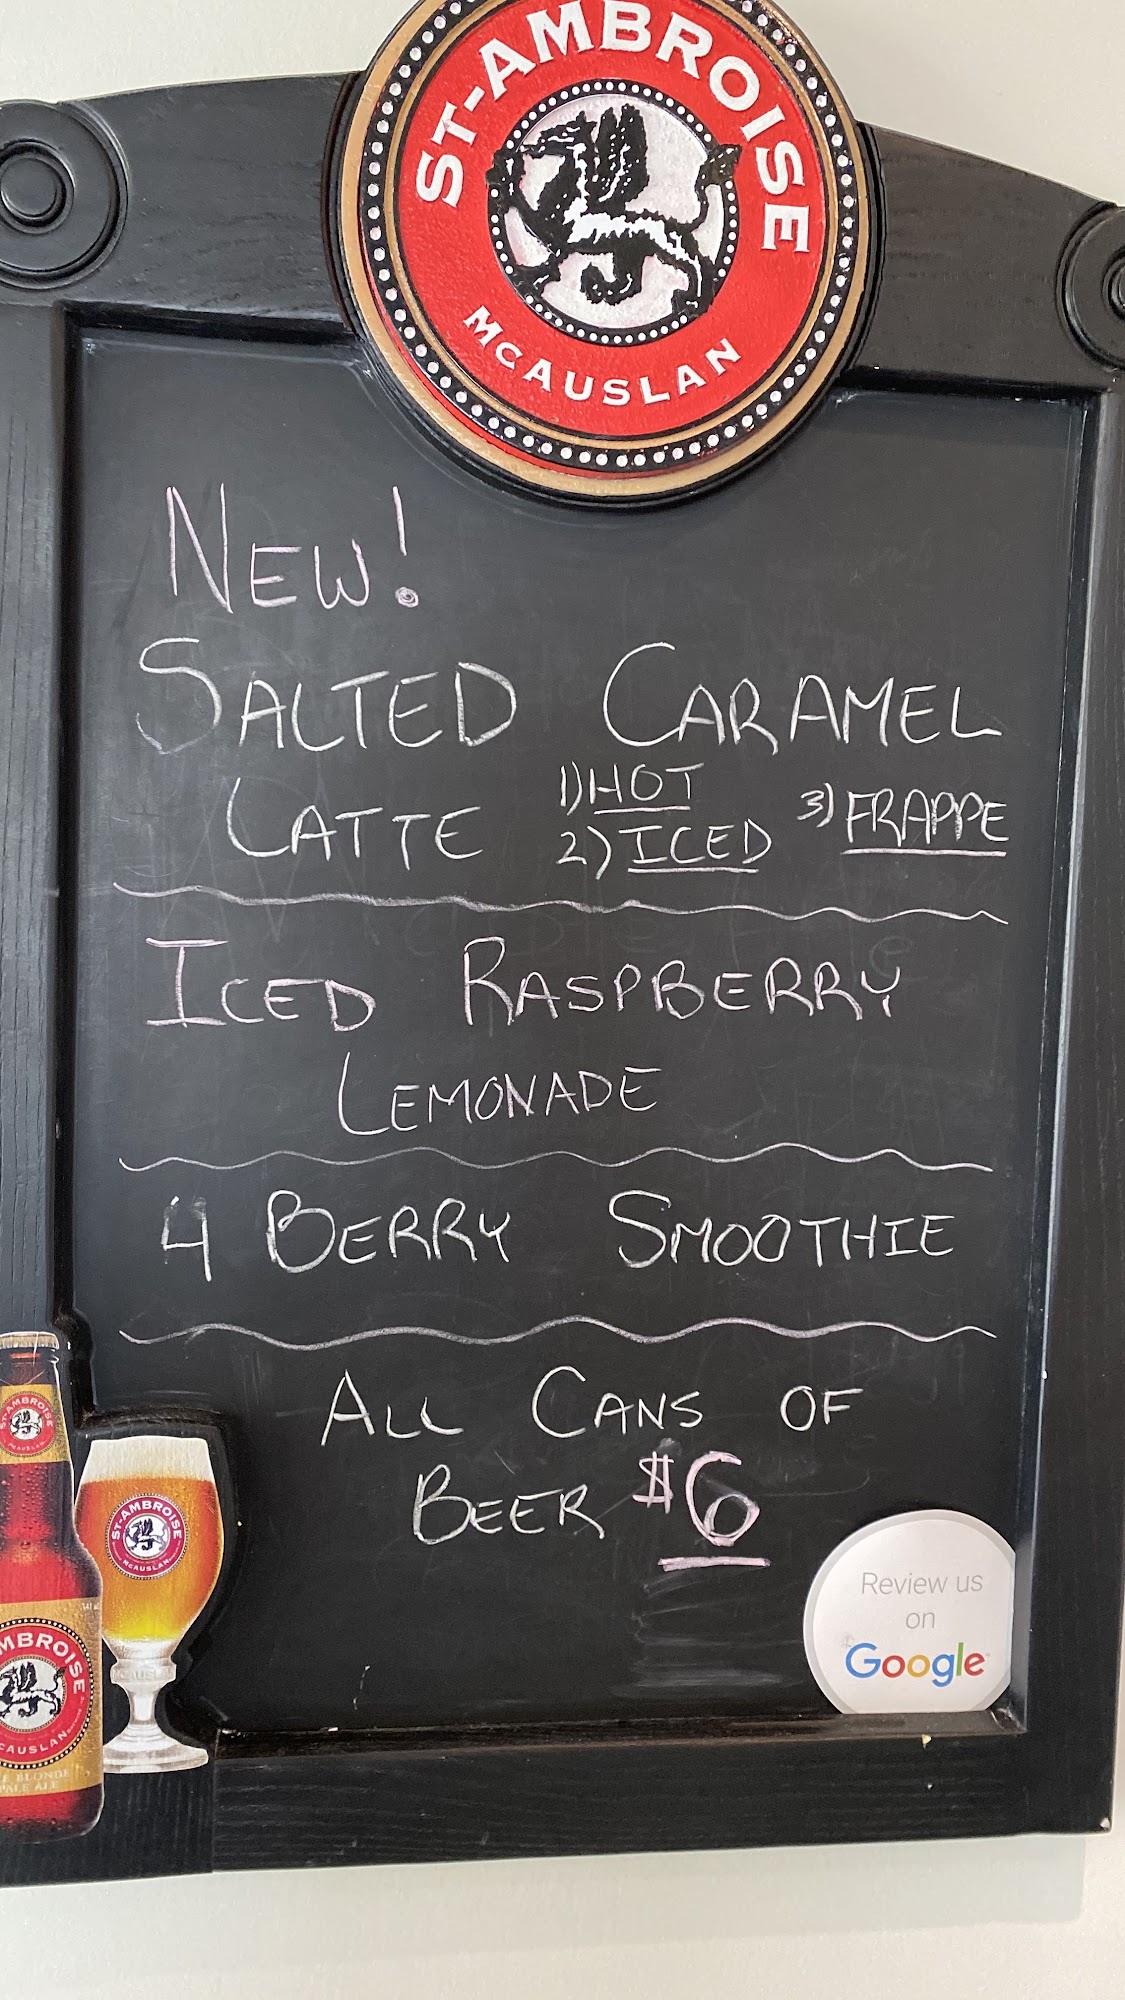 ST-AMBROISE
McAUSLAN
NEW!
SALTED CARAMEL
LATTE 1) HOT 3) FRAPPE
2) ICED
ICED RASPBERRY
LEMONADE
4 BERRY SMOOTHIE
ALL CANS OF
BEER $6
Review us
on
Google
ST-AMBROISE
McAUSLAN
ST-AMBROISE
McAUSLAN
MBROISE
CAUSLAN
BLONDE
PALE ALE